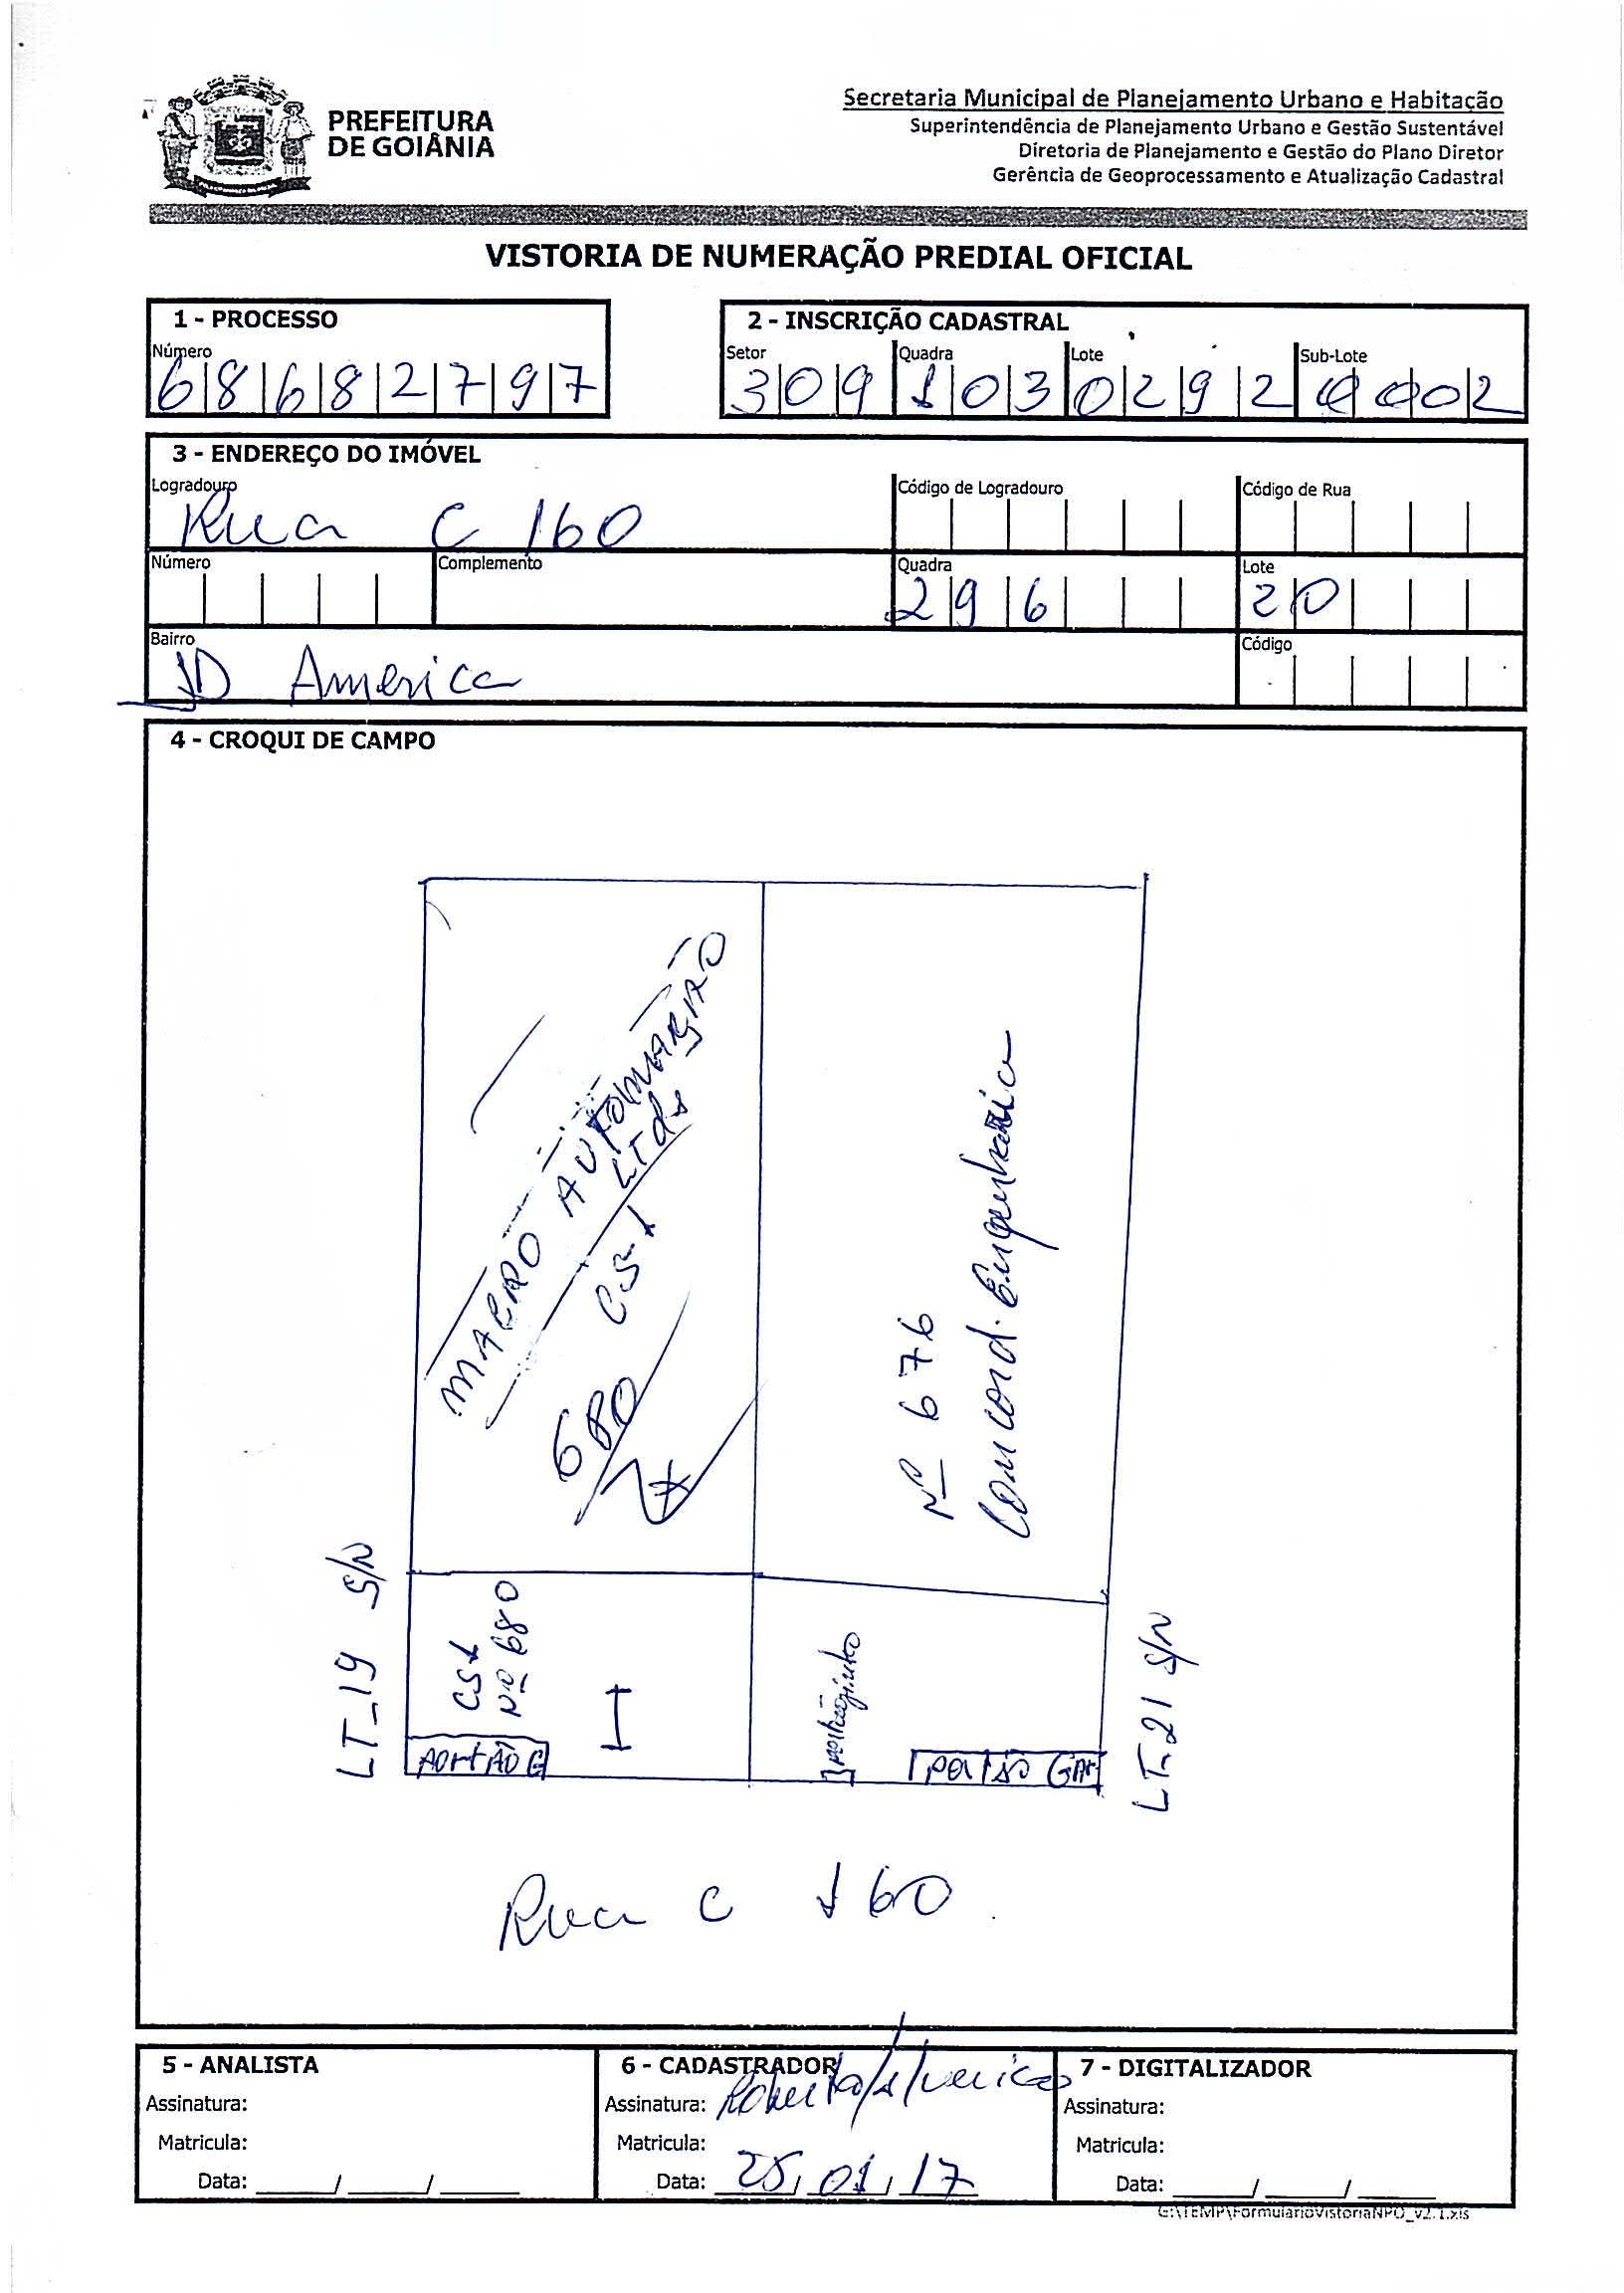 PREFEITURA
DE GOIÂNIA
Secretaria Municipal de Planejamento Urbano e Habitação
Superintendência de Planejamento Urbano e Gestão Sustentável
Diretoria de Planejamento e Gestão do Plano Diretor
Gerência de Geoprocessamento e Atualização Cadastral
VISTORIA DE NUMERAÇÃO PREDIAL OFICIAL
1 - PROCESSO
Número
68682797
2 - INSCRIÇÃO CADASTRAL
Setor Quadra Lote Sub-Lote
309 103 0292 0002
3 - ENDEREÇO DO IMÓVEL
Logradouro Código de Logradouro Código de Rua
Rua C 160
Número Complemento Quadra Lote
296 20
Bairro Código
JD America
4 - CROQUI DE CAMPO
MACRO AUTOMAÇÃO
LTda
CS 1
680
Nº 676
Concord. Engenharia
LT_19 S/N
CS1
Nº 680
I
PORTÃO G
portãozinho
portão GAR
LT-21 S/N
Rua C 160
5 - ANALISTA
Assinatura:
Matricula:
Data: ____/____/____
6 - CADASTRADOR
Assinatura:
Matricula:
Data: 25/01/17
7 - DIGITALIZADOR
Assinatura:
Matricula:
Data: ____/____/____
G:\TEMP\FormularioVistoriaNPO_v2.1.xls